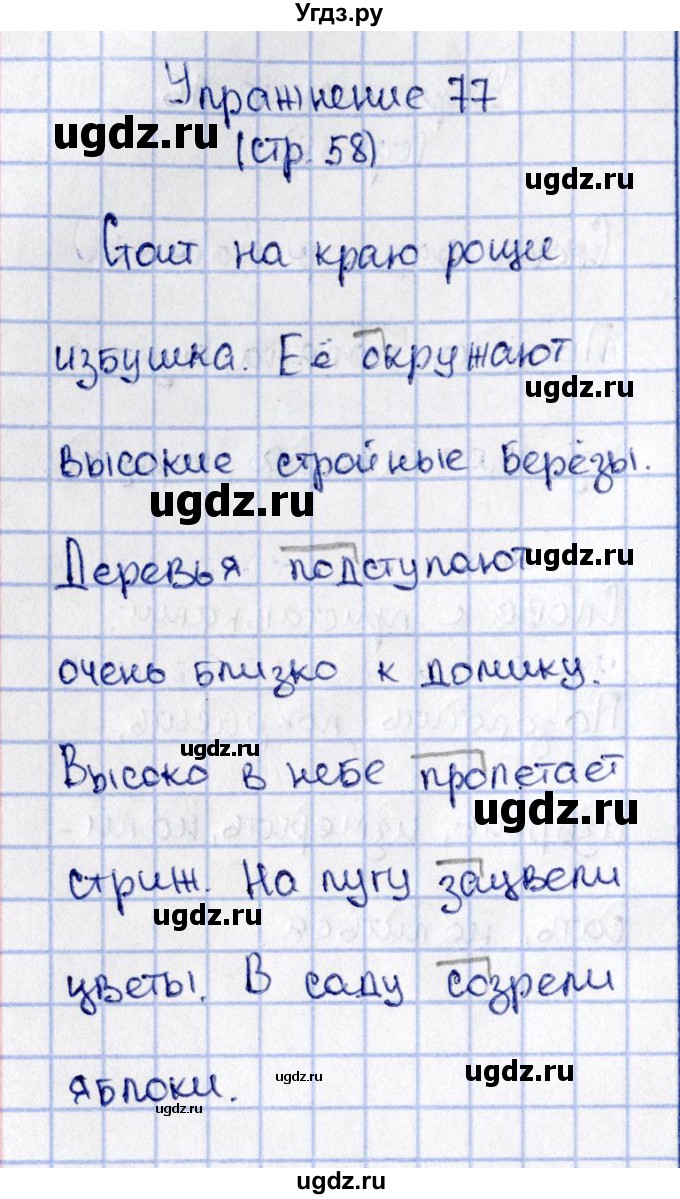 Угдз.ру
Упражнение 77
ugdz.ru
(стр. 58)
ugdz.ru
Стоит на краю рощи
избушка. Её окружают
ugdz.ru
высокие стройные берёзы.
ugdz.ru
Деревья подступают
ugdz.ru
очень близко к домику.
ugdz.ru
Высоко в небе пролетает
ugdz.ru
стриж. На лугу зацвели
ugdz.ru
цветы. В саду созрели
ugdz.ru
ugdz.ru
яблоки.
ugdz.ru
Угдз.ру